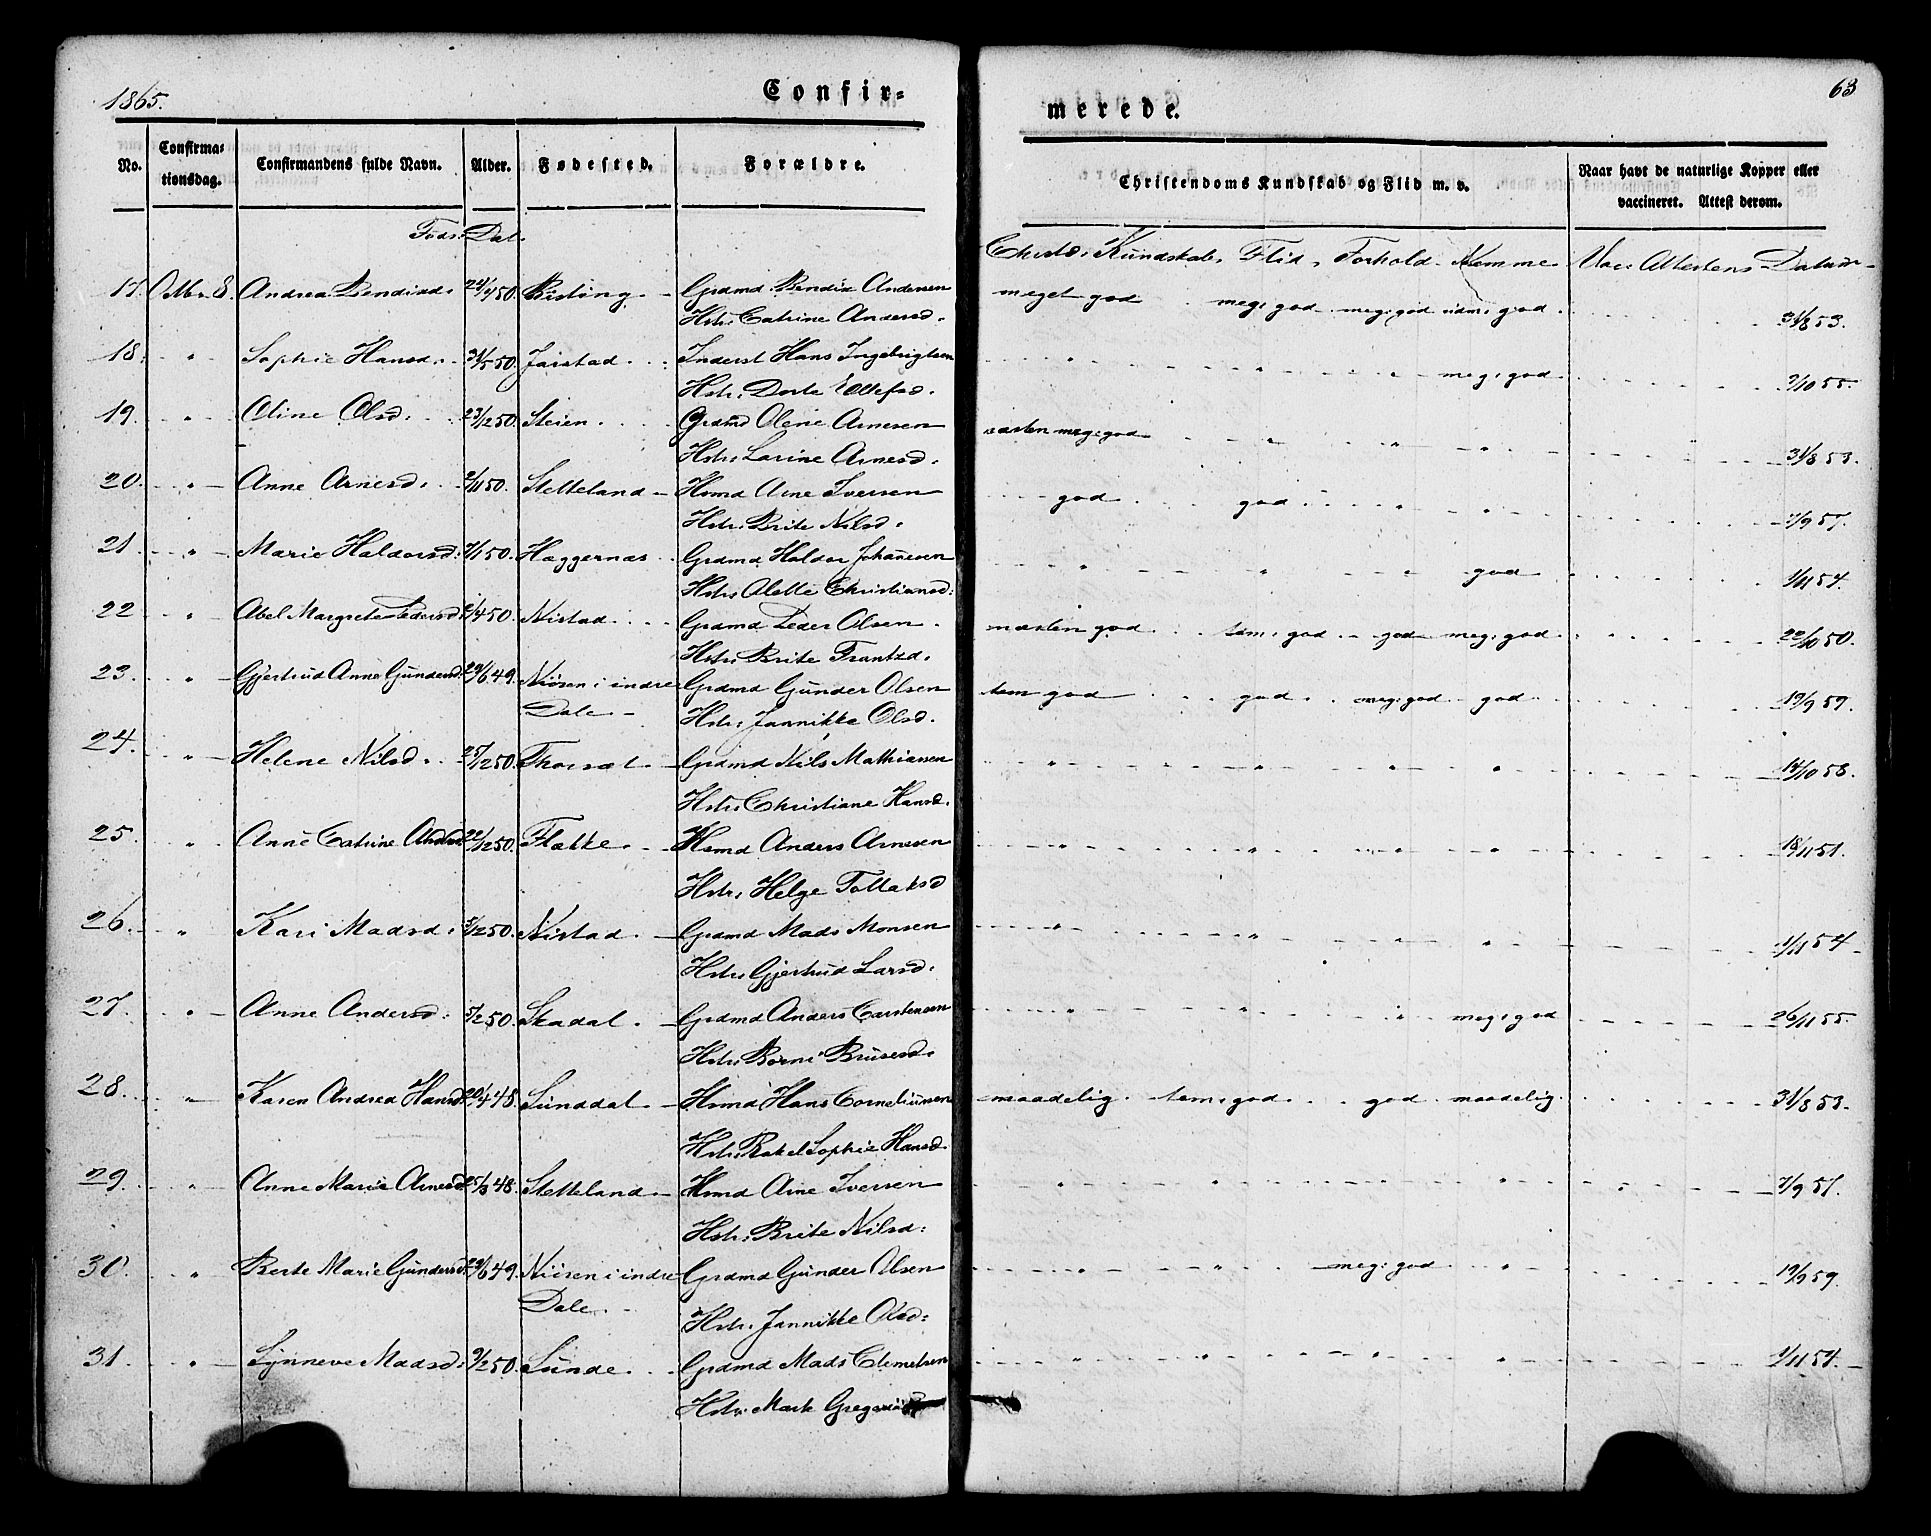 1865.
Confir-
merede.
63
No.
Confirma-
tionsdag.
Confirmandens fulde Navn.
Alder.
Fødested.
Forældre.
Christendoms Kundskab og Flid m. v.
Naar havt de naturlige Kopper eller
vaccineret. Attest derom.
Føds: Dat.
Christd: Kundskab. Flid. Forhold. Nemme.
Vac: Attestens Datum
17. Octbr 8. Andrea Bendixd: 24/4 50. Risting. Grdmd Bendix Andersen
Hstr: Catrine Andersd.
meget god meg: god meg: god udm: god 31/8 53.
18. " Sophie Hansd. 31/5 50. Jaistad. Inderst Hans Ingebrigtsen
Hstr: Dorte Ellefsd.
" " " meg: god 2/10 55.
19. " Oline Olsd: 23/2 50. Steien. Grdmd Olene Arnesen
Hstr: Larine Arnesd:
næsten meg: god " " " 31/8 53.
20. " Anne Arnesd. 2/11 50. Stetteland Hsmd Arne Iversen
Hstr: Brite Nilsd:
god god " " 7/9 57.
21. " Marie Haldorsd: 7/1 50. Hæggernæs Grdmd Haldor Johannesen
Hstr: Alette Christiansd:
" " " god 1/11 54.
22 " Abel Margrete Pedersd: 2/4 50. Nistad. Grdmd Peder Olsen.
Hstr: Brite Frantzd.
næsten god tem: god god meg: god 22/10 50.
23. " Gjertrud Anne Gundersd. 29/6 49. Niøsen i indre Grdmd Gunder Olsen
Dale. Hstr: Jannikke Olsd.
tem god god meg: god god 19/9 59.
24. " Helene Nilsd. 25/12 50. Thorsæt. Grdmd Nils Mathiasen
Hstr: Christiane Hansd.
" " " " 14/10 58.
25. " Anne Catrine Andersd 22/12 50. Flække. Hsmd Anders Arnesen
Hstr: Helge Tollaksd
" " " " 18/11 51.
26. " Kari Madsd: 3/2 50. Nistad. Grdmd Mads Monsen
Hstr: Gjertrud Larsd:
" " " " 1/11 54
27. " Anne Andersd: 5/2 50. Skadal. Grdmd Anders Carstensen
Hstr: Børni Brusesd.
" " " meg: god 26/11 55.
28. " Karen Andrea Hansd. 20/4 48. Sunddal Hsmd Hans Corneliussen
Hstr: Rakel Sophie Hansd
maadelig. tem: god. god maadelig. 31/8 53.
29. " Anne Marie Arnesd 25/3 48. Stetteland Hsmd Arne Iversen
Hstr: Brite Nilsd:
" " " " 7/9 57.
30. " Berte Marie Gundersd. 29/6 49. Niøsen i indre Grdmd Gunder Olsen
Dale. Hstr: Jannikke Olsd:
" " meg: god " 19/9 59.
31. " Synneve Madsd: 9/2 50. Sunde. Grdmd Mads Clemetsen
Hstr: Marte
" " " " 1/11 54.